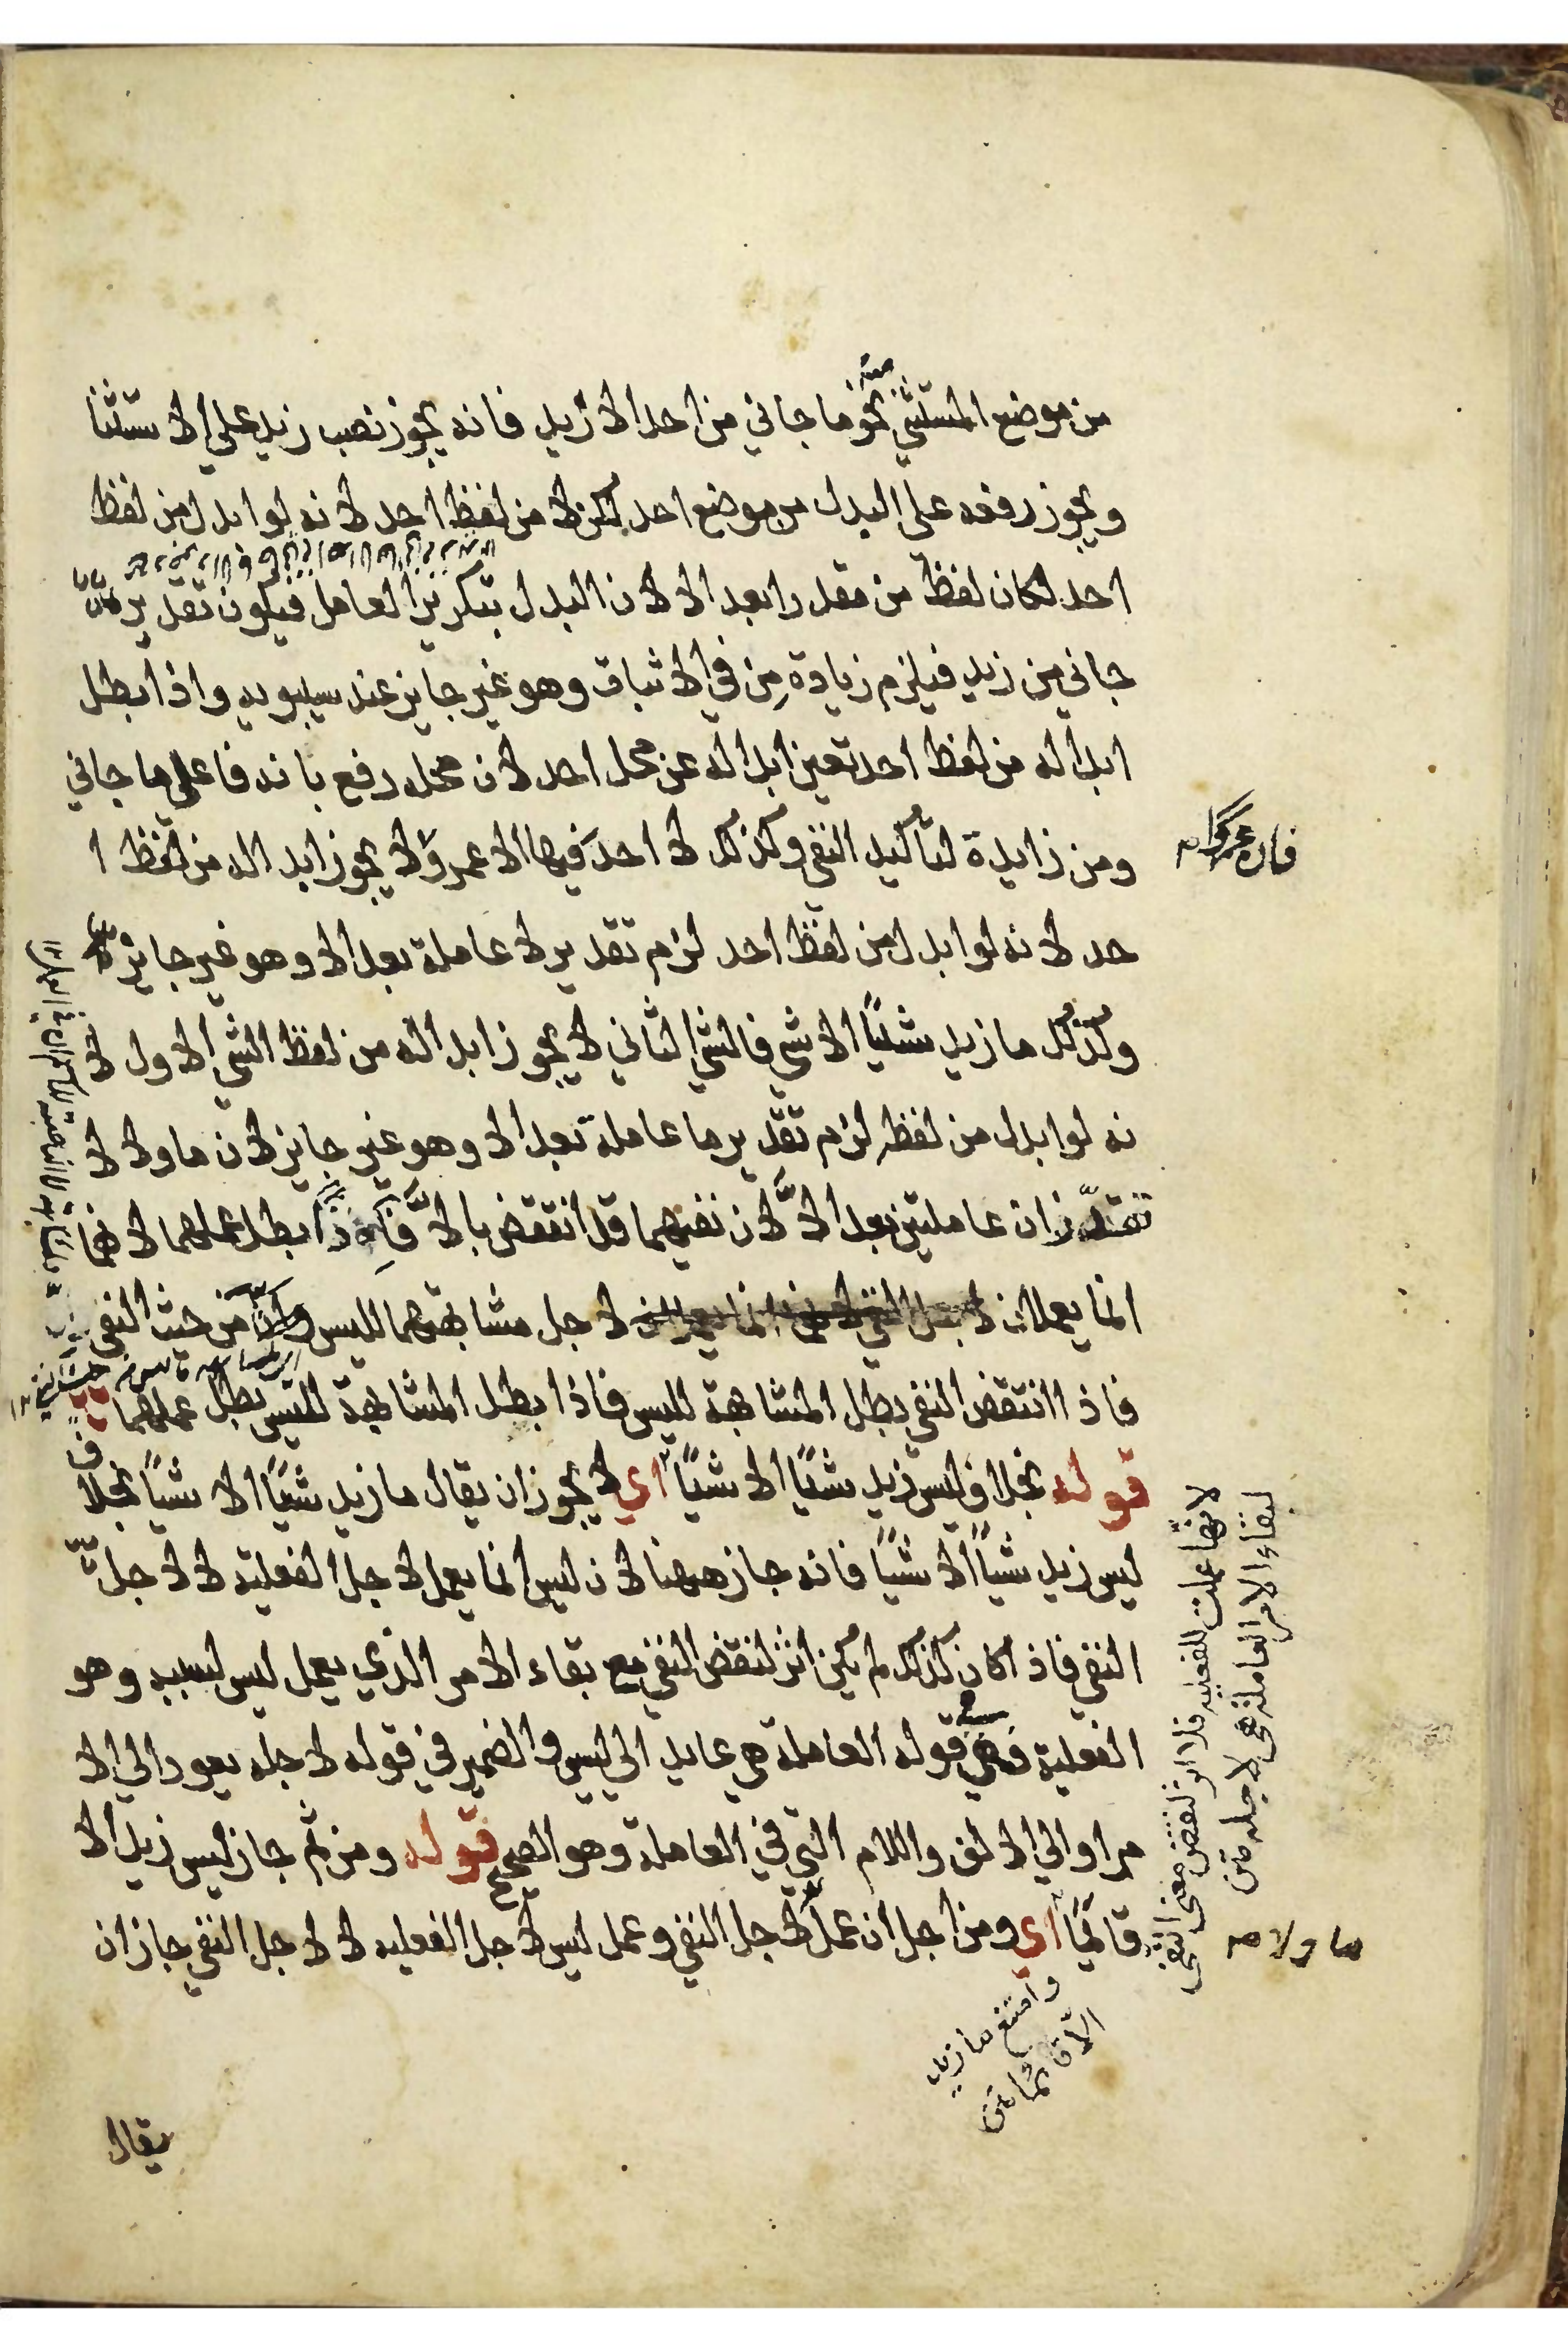 من موضع المستثنى منه نحو ما جاني من احد الا زيد فانه يجوز نصب زيد على الاستثنا
ويجوز رفعه على البدل من موضع احد لكن لا من لفظ احد لانه لو ابدل من لفظ
احد لكان لفظ من مقدرا بعد الا لان البدل بتكرير العامل فيكون تقديره
جاني من زيد فيلزم زيادة مِن في الاثبات وهو غير جايز عند سيبويه واذا بطل
ابداله من لفظ احد تعين ابداله عن محل احد لان محله رفع بانه فاعل ما جاني
ومن زايدة لتأكيد النفي وكذلك لا احد فيها الا عمرو لا يجوز ابداله من لفظ ا
حد لانه لو ابدل من لفظ احد لزم تقدير لا عاملة بعد الا وهو غير جايز
وكذلك ما زيد شيئًا الا شي فالشي الثاني لا يجوز ابداله من لفظ الشي الاول لا
نه لو ابدل من لفظه لزم تقدير ما عاملة بعد الا وهو غير جايز لان ما ولا لا
تقدّران عاملتين بعد الا لان نفيهما قد انتقض بالا بطل عملهما لانهما
انما يعملان لاجل مشابهتهما لليس من حيث النفي
فاذا انتقض النفي بطل المشابهة لليس فاذا بطل المشابهة لليس بطل عملهما
قوله بخلاف ليس زيد شيئًا الا شيئًا اي لا يجوز ان يقال ما زيد شيئًا الا شيئًا بخلاف
ليس زيد شيئًا الا شيئًا فانه جاز ههنا لان ليس انما يعمل لاجل الفعلية لا لاجل
النفي فاذا كان كذلك لم يكن اثر لنقض النفي مع بقاء الامر الذي يعمل ليس لسببه وهو
الفعلية فهي قوله العاملة هي عايد الي ليس والضمير في قوله لاجله يعود الي الا
مر او الي الالف واللام التي في العاملة وهو الصحيح قوله ومن ثم جاز ليس زيد الا
قائمًا اي ومن اجل ان عمل لاجل النفي وعمل ليس لاجل الفعليه لا لاجل النفي جاز ان
لانها عملت للفعليه فلا اثر لنقض معنى النفي
لبقاء الامر العاملة هي لاجله متن
ما ولا
وامتنع ما زيد
الا قائما متن
يقال